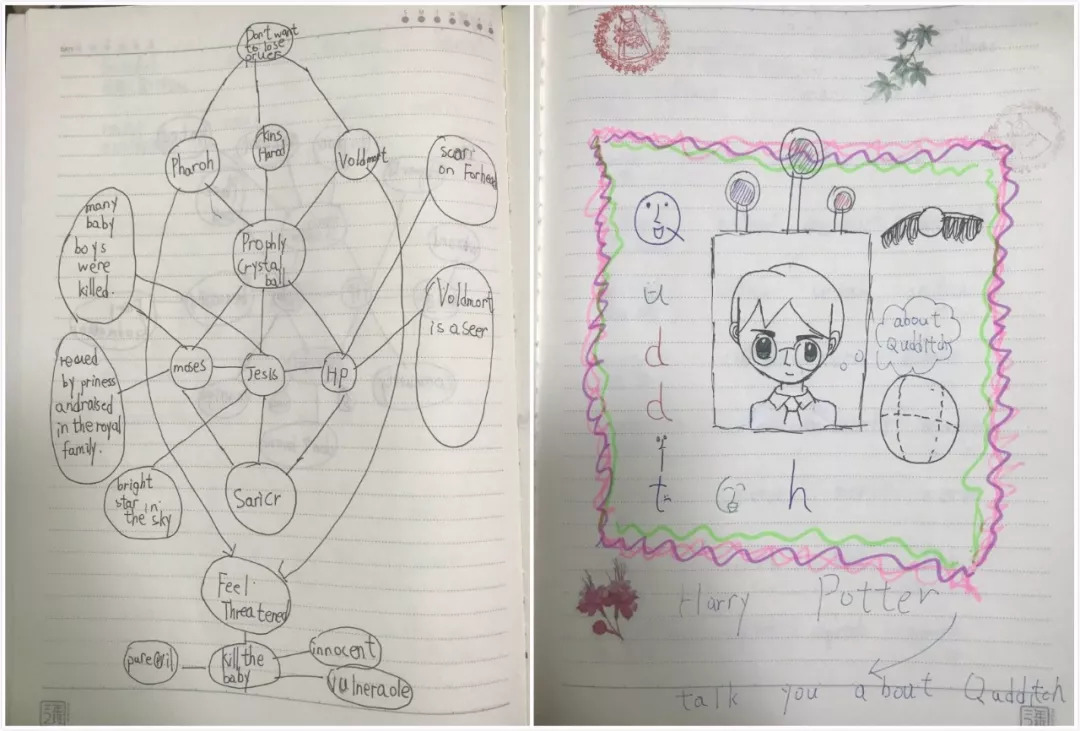 Don't want
to lose
Pharoh
king
Harod
Voldmort
scarr
on Forhead
many
baby
boys
were
killed.
Prophly
Crystal
ball
Voldmort
is a seer
moses
Jesis
HP
by priness
and raised
in the royal
family.
bright
star in
the sky
Feel
Threatened
pure evil
kill the
baby
innocent
about
Qudditch
u
d
d
i
t
h
Harry Potter
talk you about Qudditch